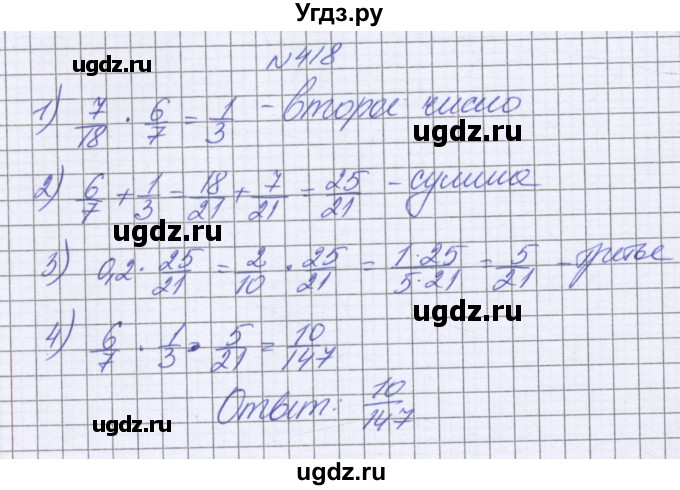 Угдз.ру
№418
ugdz.ru
1) 7/18 · 6/7 = 1/3 - второе число
ugdz.ru
2) 6/7 + 1/3 = 18/21 + 7/21 = 25/21 - сумма
ugdz.ru
3) 0,2 · 25/21 = 2/10 · 25/21 = 1·25/5·21 = 5/21 - третье
ugdz.ru
4) 6/7 · 1/3 · 5/21 = 10/147
ugdz.ru
Ответ: 10/147
ugdz.ru
ugdz.ru